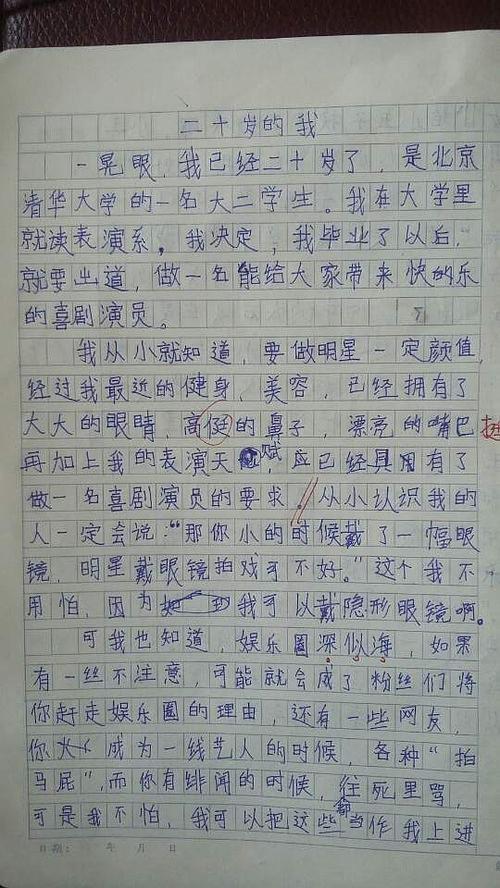 二十岁的我
一晃眼，我已经二十岁了，是北京
清华大学的一名大二学生。我在大学里
就读表演系。我决定，我毕业了以后，
就要出道，做一名能给大家带来快的乐
的喜剧演员。
我从小就知道，要做明星一定颜值，
经过我最近的健身，美容，已经拥有了
大大的眼睛，高侹的鼻子，漂亮的嘴巴
挺
再加上我的表演天赋，应已经具用有了
做一名喜剧演员的要求。从小认识我的
人一定会说：“那你小的时候戴了一幅眼
镜，明星戴眼镜拍戏可不好。”这个我不
用怕，因为我可以戴隐形眼镜啊。
可我也知道，娱乐圈深似海，如果
有一丝不注意，可能就会成了粉丝们将
你赶走娱乐圈的理由，还有一些网友，
你火成为一线艺人的时候，各种“拍
马屁”，而你有绯闻的时候，往死里骂，
可是我不怕，我可以把这些都当作我上进
日期： 年 月 日